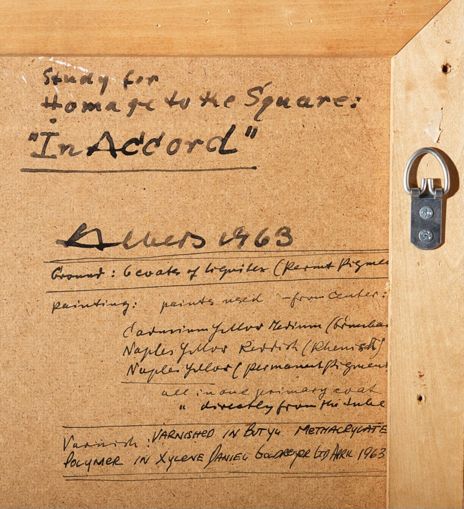 Study for
Homage to the Square:
"In Accord"
Albers 1963
Ground: 6 coats of Liquitex (Permt Pigme
painting: paints used - from center:
Cadmium Yellow Medium (Grumbac
Naples Yellow Reddish (Rhenish)
Naples Yellow (Permanent Pigmen
all in one primary coat
" directly from the tube
Varnish: VARNISHED IN BUTYL METHACRYLATE
POLYMER IN XYLENE DANIEL LTD APRIL 1963